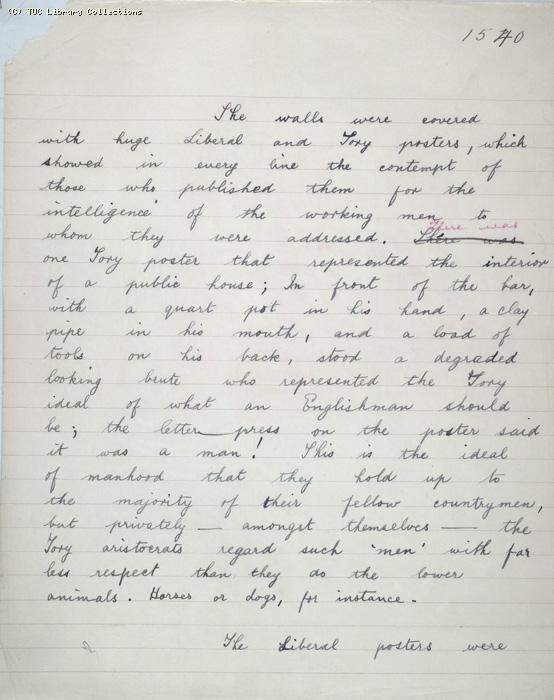 (C) TUC Library Collections
1540
The walls were covered
with huge Liberal and Tory posters, which
showed in every line the contempt of
those who published them for the
intelligence of the working men to
There was
whom they were addressed. There was
one Tory poster that represented the interior
of a public house; In front of the bar,
with a quart pot in his hand, a clay
pipe in his mouth, and a load of
tools on his back, stood a degraded
looking brute who represented the Tory
ideal of what an Englishman should
be; the letter press on the poster said
it was a man! This is the ideal
of manhood that they hold up to
the majority of their fellow countrymen,
but privately — amongst themselves — the
Tory aristocrats regard such 'men' with far
less respect than they do the lower
animals. Horses or dogs, for instance.
The Liberal posters were